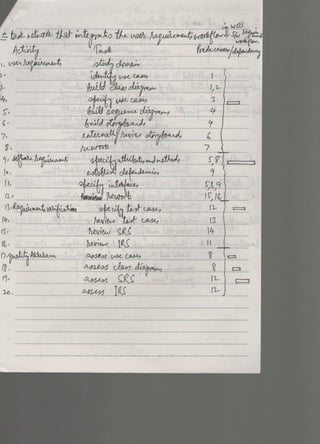 A task network that integrates the user Requirements workflow
Activity Task Predecessor/dependency
1. user requirements study domain
2. identify use cases 1
3. build class diagram 1,2
4. specify use cases 3
5. build sequence diagrams 4
6. build storyboards 4
7. externally review storyboards 6
8. rework 7
9. software Requirements specify attributes and methods 5,8
10. establish dependencies 9
11. specify interfaces 5,8,9
12. Rework 15,16
13. Requirements verification specify test cases 12
14. Review test cases 13
15. Review SRS 14
16. Review IRS 11
17. quality Assurance assess use cases 8
18. assess class diagrams 8
19. assess SRS 12
20. assess IRS 12